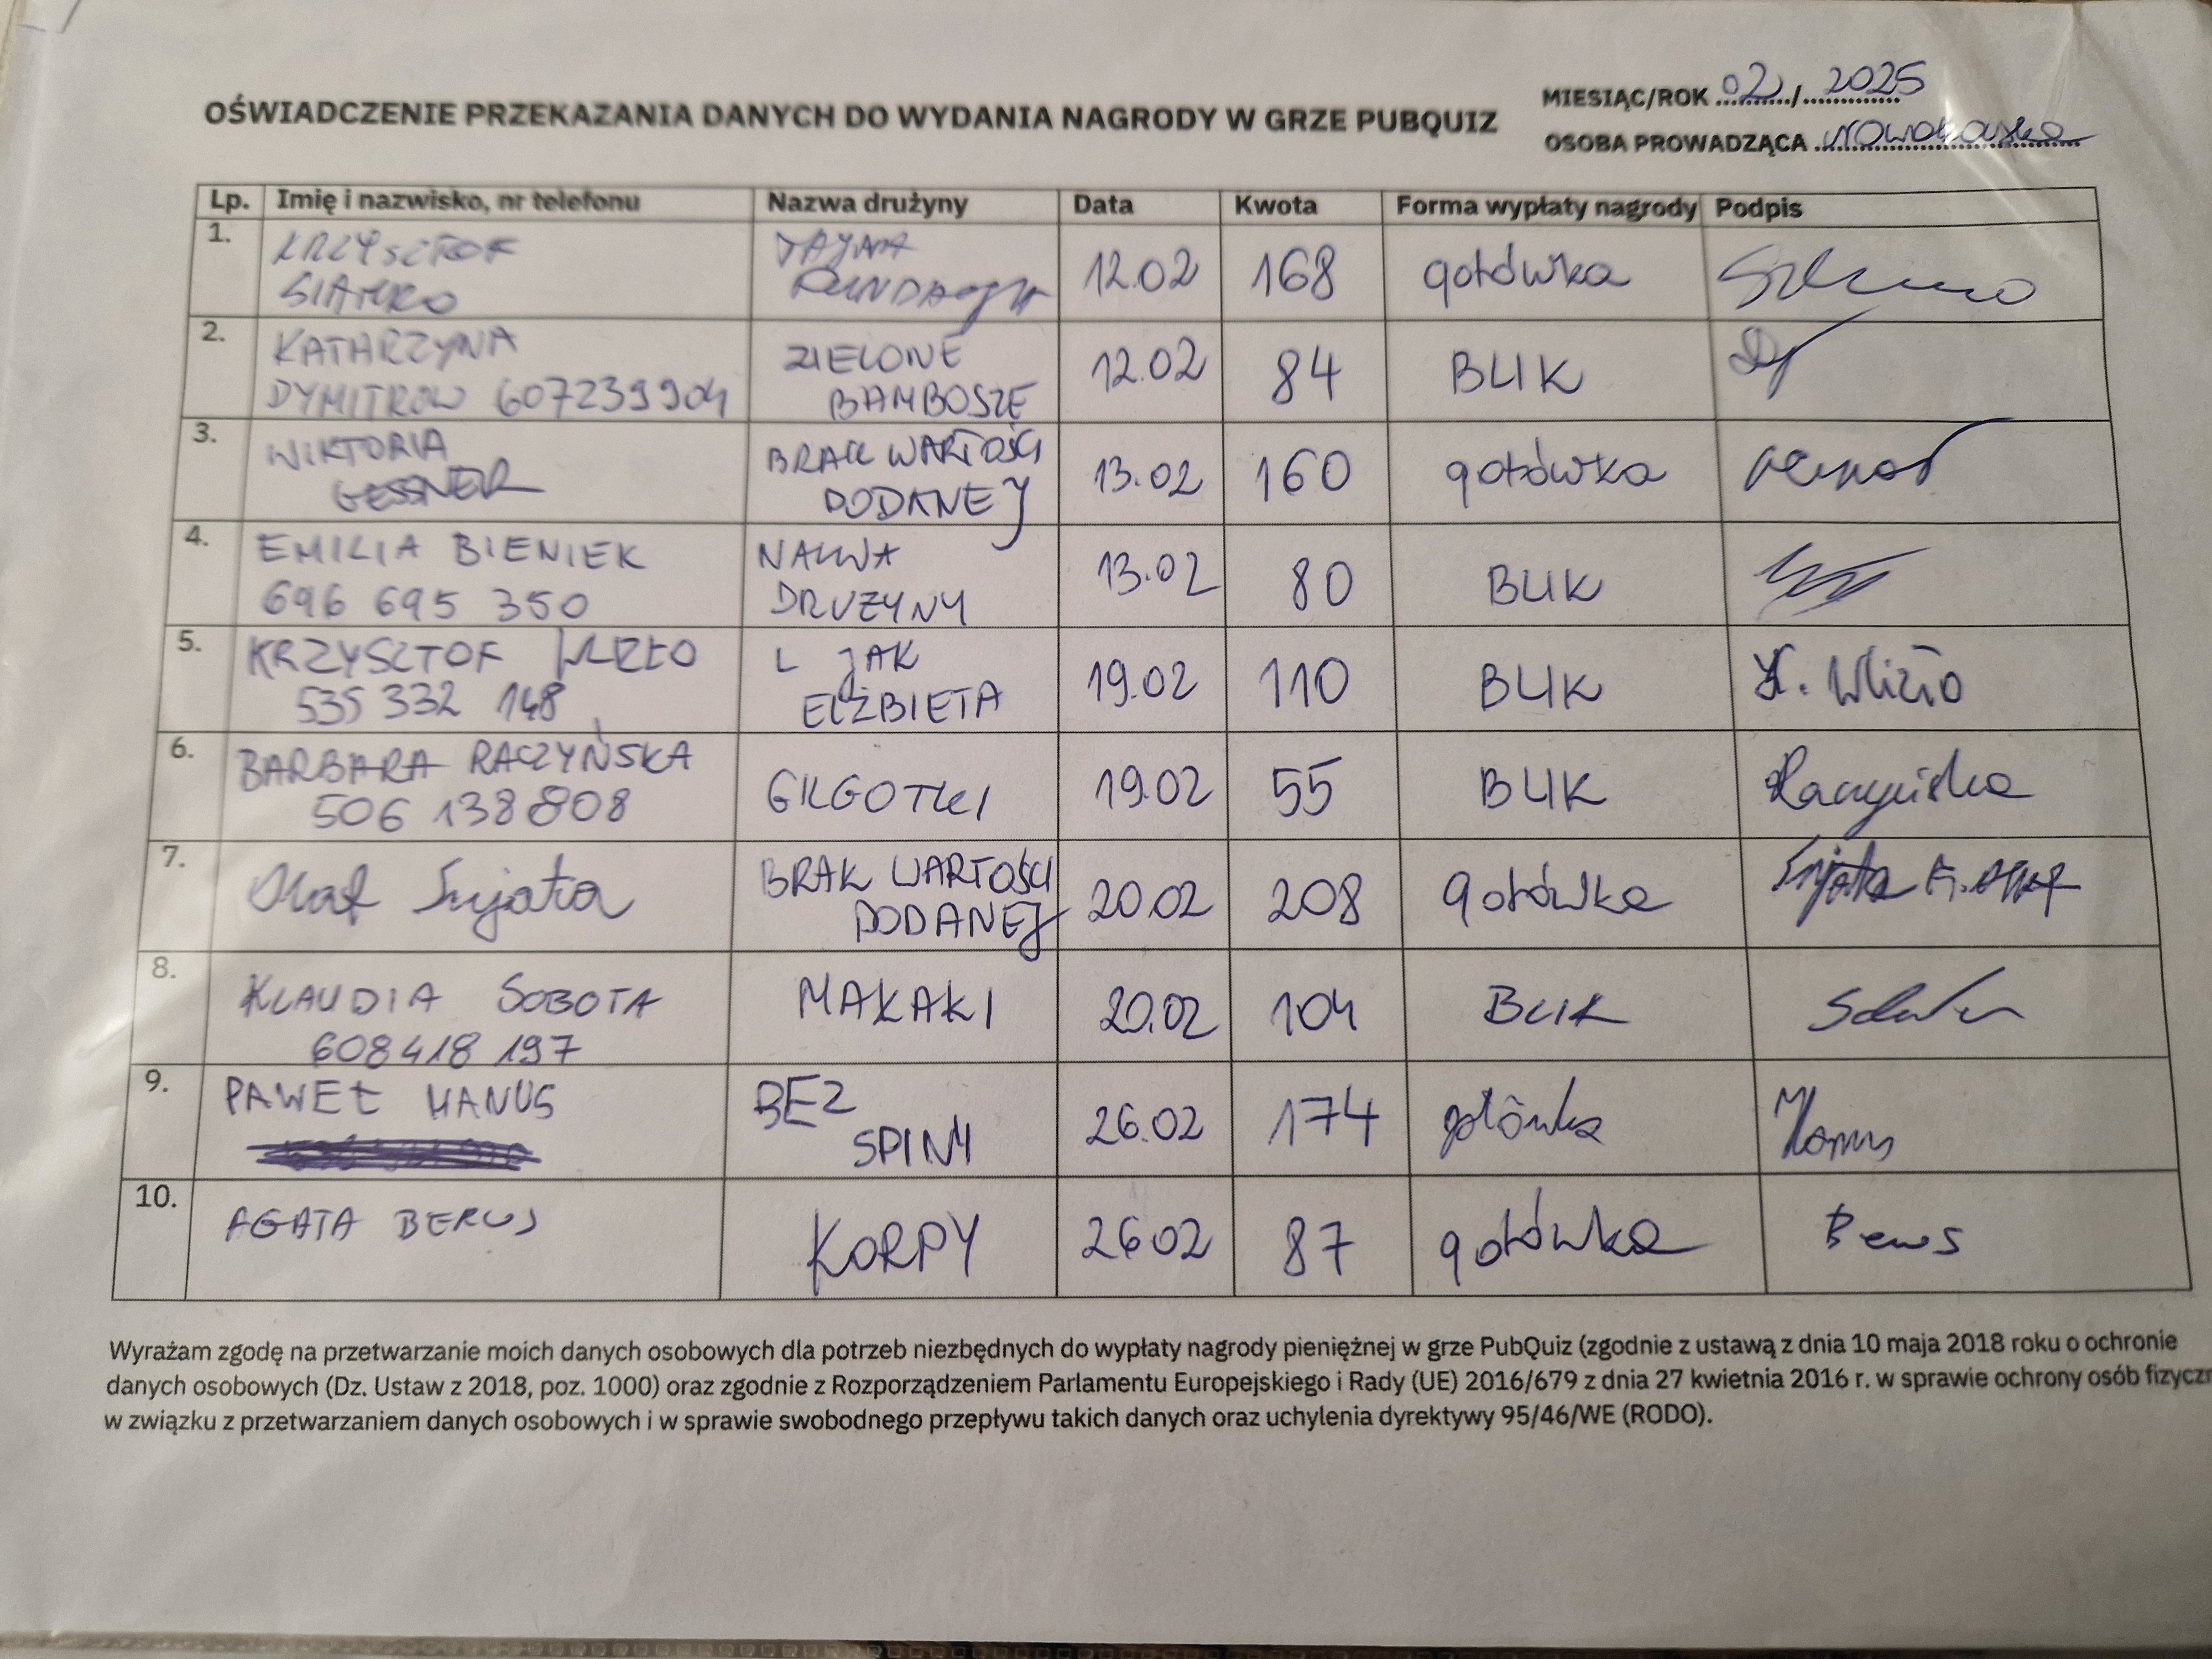 OŚWIADCZENIE PRZEKAZANIA DANYCH DO WYDANIA NAGRODY W GRZE PUBQUIZ
MIESIĄC/ROK 02 / 2025
OSOBA PROWADZĄCA
Lp. Imię i nazwisko, nr telefonu Nazwa drużyny Data Kwota Forma wypłaty nagrody Podpis
1. KRZYSZTOF TAJNA
12.02 168 gotówka
2. KATARZYNA ZIELONE
DYMITROW 607239904 BAMBOSZE 12.02 84 BLIK
3. WIKTORIA BRAK WARTOŚCI
GESSNER DODANEJ 13.02 160 gotówka
4. EMILIA BIENIEK
696 695 350 DRUŻYNY 13.02 80 BLIK
5. KRZYSZTOF L JAK
535 332 148 ELŻBIETA 19.02 110 BLIK K. Wlizło
6. BARBARA RACZYŃSKA
506 138 808 GILGOTKI 19.02 55 BLIK Raczyńska
7. Olaf BRAK WARTOŚCI
DODANEJ 20.02 208 gotówka
8. KLAUDIA SOBOTA MAKAKI 20.02 104 BLIK
608 418 197
9. PAWEŁ HANUS BEZ
SPINY 26.02 174 gotówka Hanus
10. AGATA BERUS KORPY 26.02 87 gotówka Berus
Wyrażam zgodę na przetwarzanie moich danych osobowych dla potrzeb niezbędnych do wypłaty nagrody pieniężnej w grze PubQuiz (zgodnie z ustawą z dnia 10 maja 2018 roku o ochronie
danych osobowych (Dz. Ustaw z 2018, poz. 1000) oraz zgodnie z Rozporządzeniem Parlamentu Europejskiego i Rady (UE) 2016/679 z dnia 27 kwietnia 2016 r. w sprawie ochrony osób fizyczn
w związku z przetwarzaniem danych osobowych i w sprawie swobodnego przepływu takich danych oraz uchylenia dyrektywy 95/46/WE (RODO).